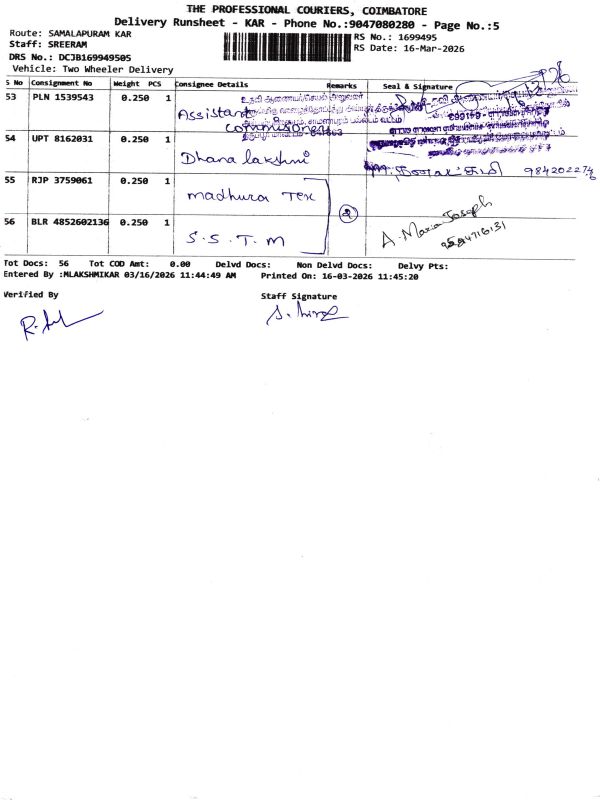 THE PROFESSIONAL COURIERS, COIMBATORE
Delivery Runsheet - KAR - Phone No.:9047080280 - Page No.:5
Route: SAMALAPURAM KAR
Staff: SREERAM
DRS No.: DCJB169949505
Vehicle: Two Wheeler Delivery
RS No.: 1699495
RS Date: 16-Mar-2026
S No Consignment No Weight PCS Consignee Details Remarks Seal & Signature
53 PLN 1539543 0.250 1 Assistant
commissoner
54 UPT 8162031 0.250 1 Dhana lakshmi 984202274
55 RJP 3759061 0.250 1 madhura Tex
56 BLR 4852602136 0.250 1 S.S.T.M 2 A. Maria Joseph
Tot Docs: 56 Tot COD Amt: 0.00 Delvd Docs: Non Delvd Docs: Delvy Pts:
Entered By :MLAKSHMIKAR 03/16/2026 11:44:49 AM Printed On: 16-03-2026 11:45:20
Verified By Staff Signature